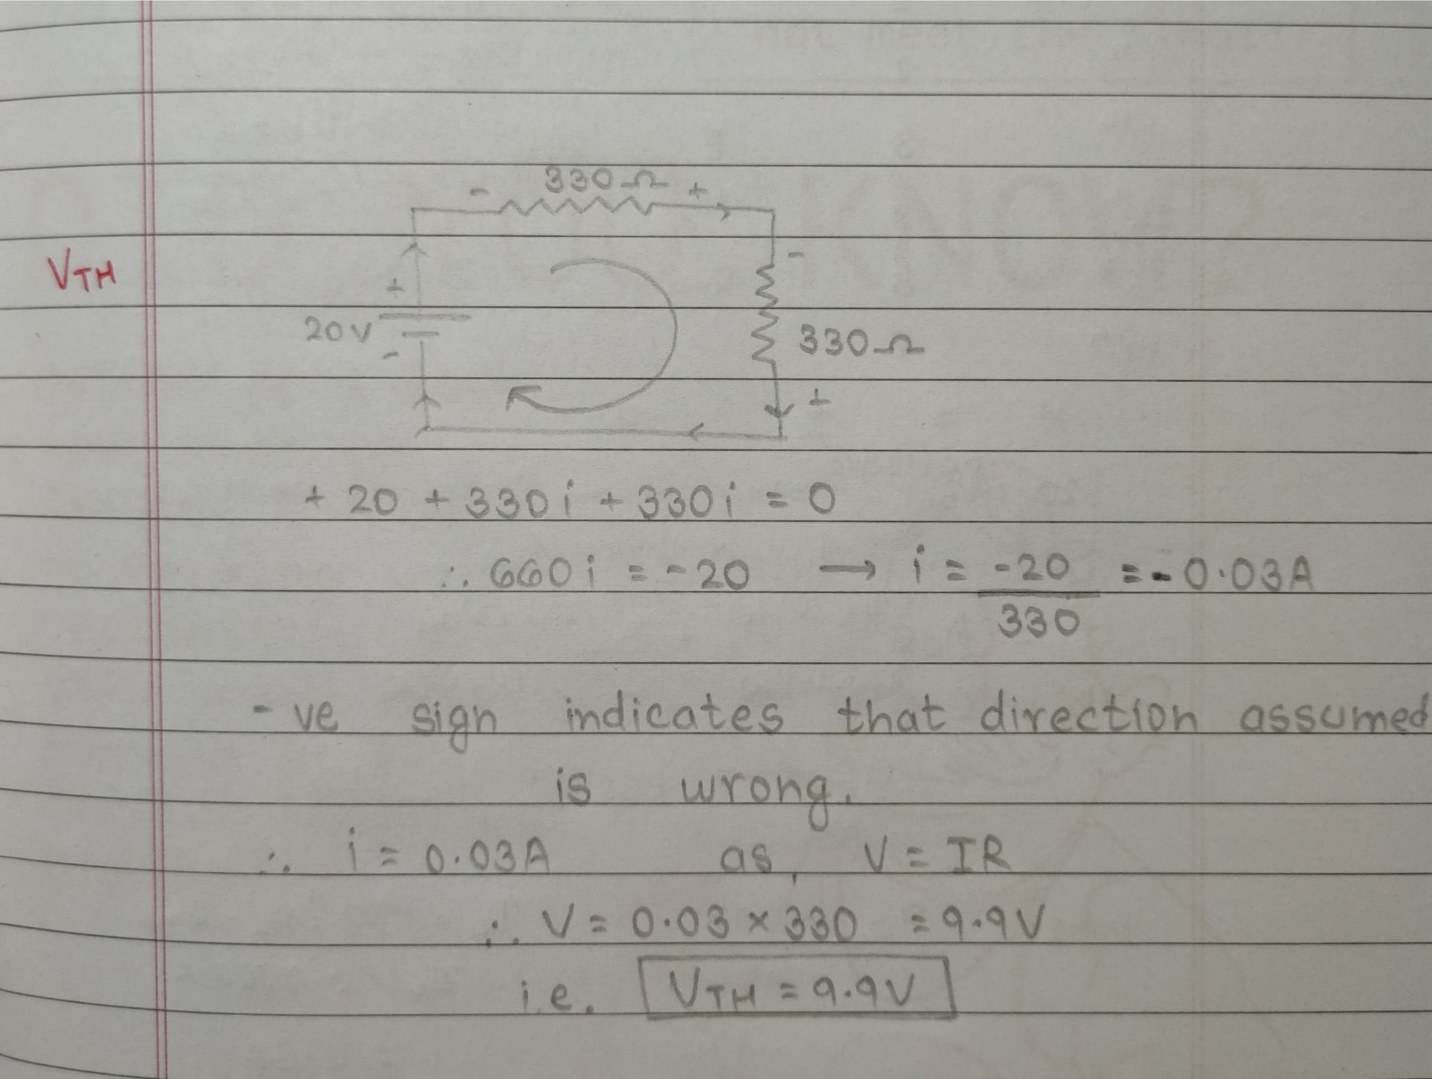 - 330Ω +
VTH
+
-
20V
-
330Ω
+
+ 20 + 330i + 330i = 0
∴ 660i = -20 → i = -20/330 = -0.03A
-ve sign indicates that direction assumed
is wrong.
∴ i = 0.03A as, V = IR
∴ V = 0.03 × 330 = 9.9V
i.e. VTH = 9.9V